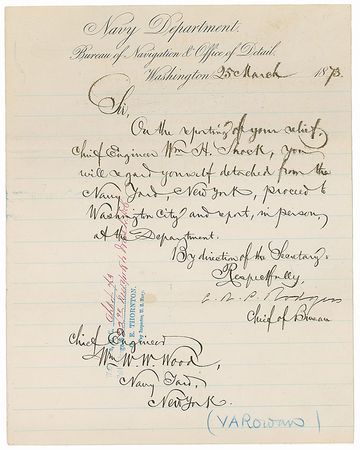 Navy Department.
Bureau of Navigation & Office of Detail.
Washington 25 March 1873.
Sir,
On the reporting of your relief,
Chief Engineer Wm H. Shock, you
will regard yourself detached from the
Navy Yard, New York, proceed to
Washington City and report, in person,
at the Department.
By direction of the Secretary.
Respectfully,
Chief of Bureau
E. THORNTON.
Chief Engineer
Wm W. W. Wood,
Navy Yard,
New York.
(VARowan)